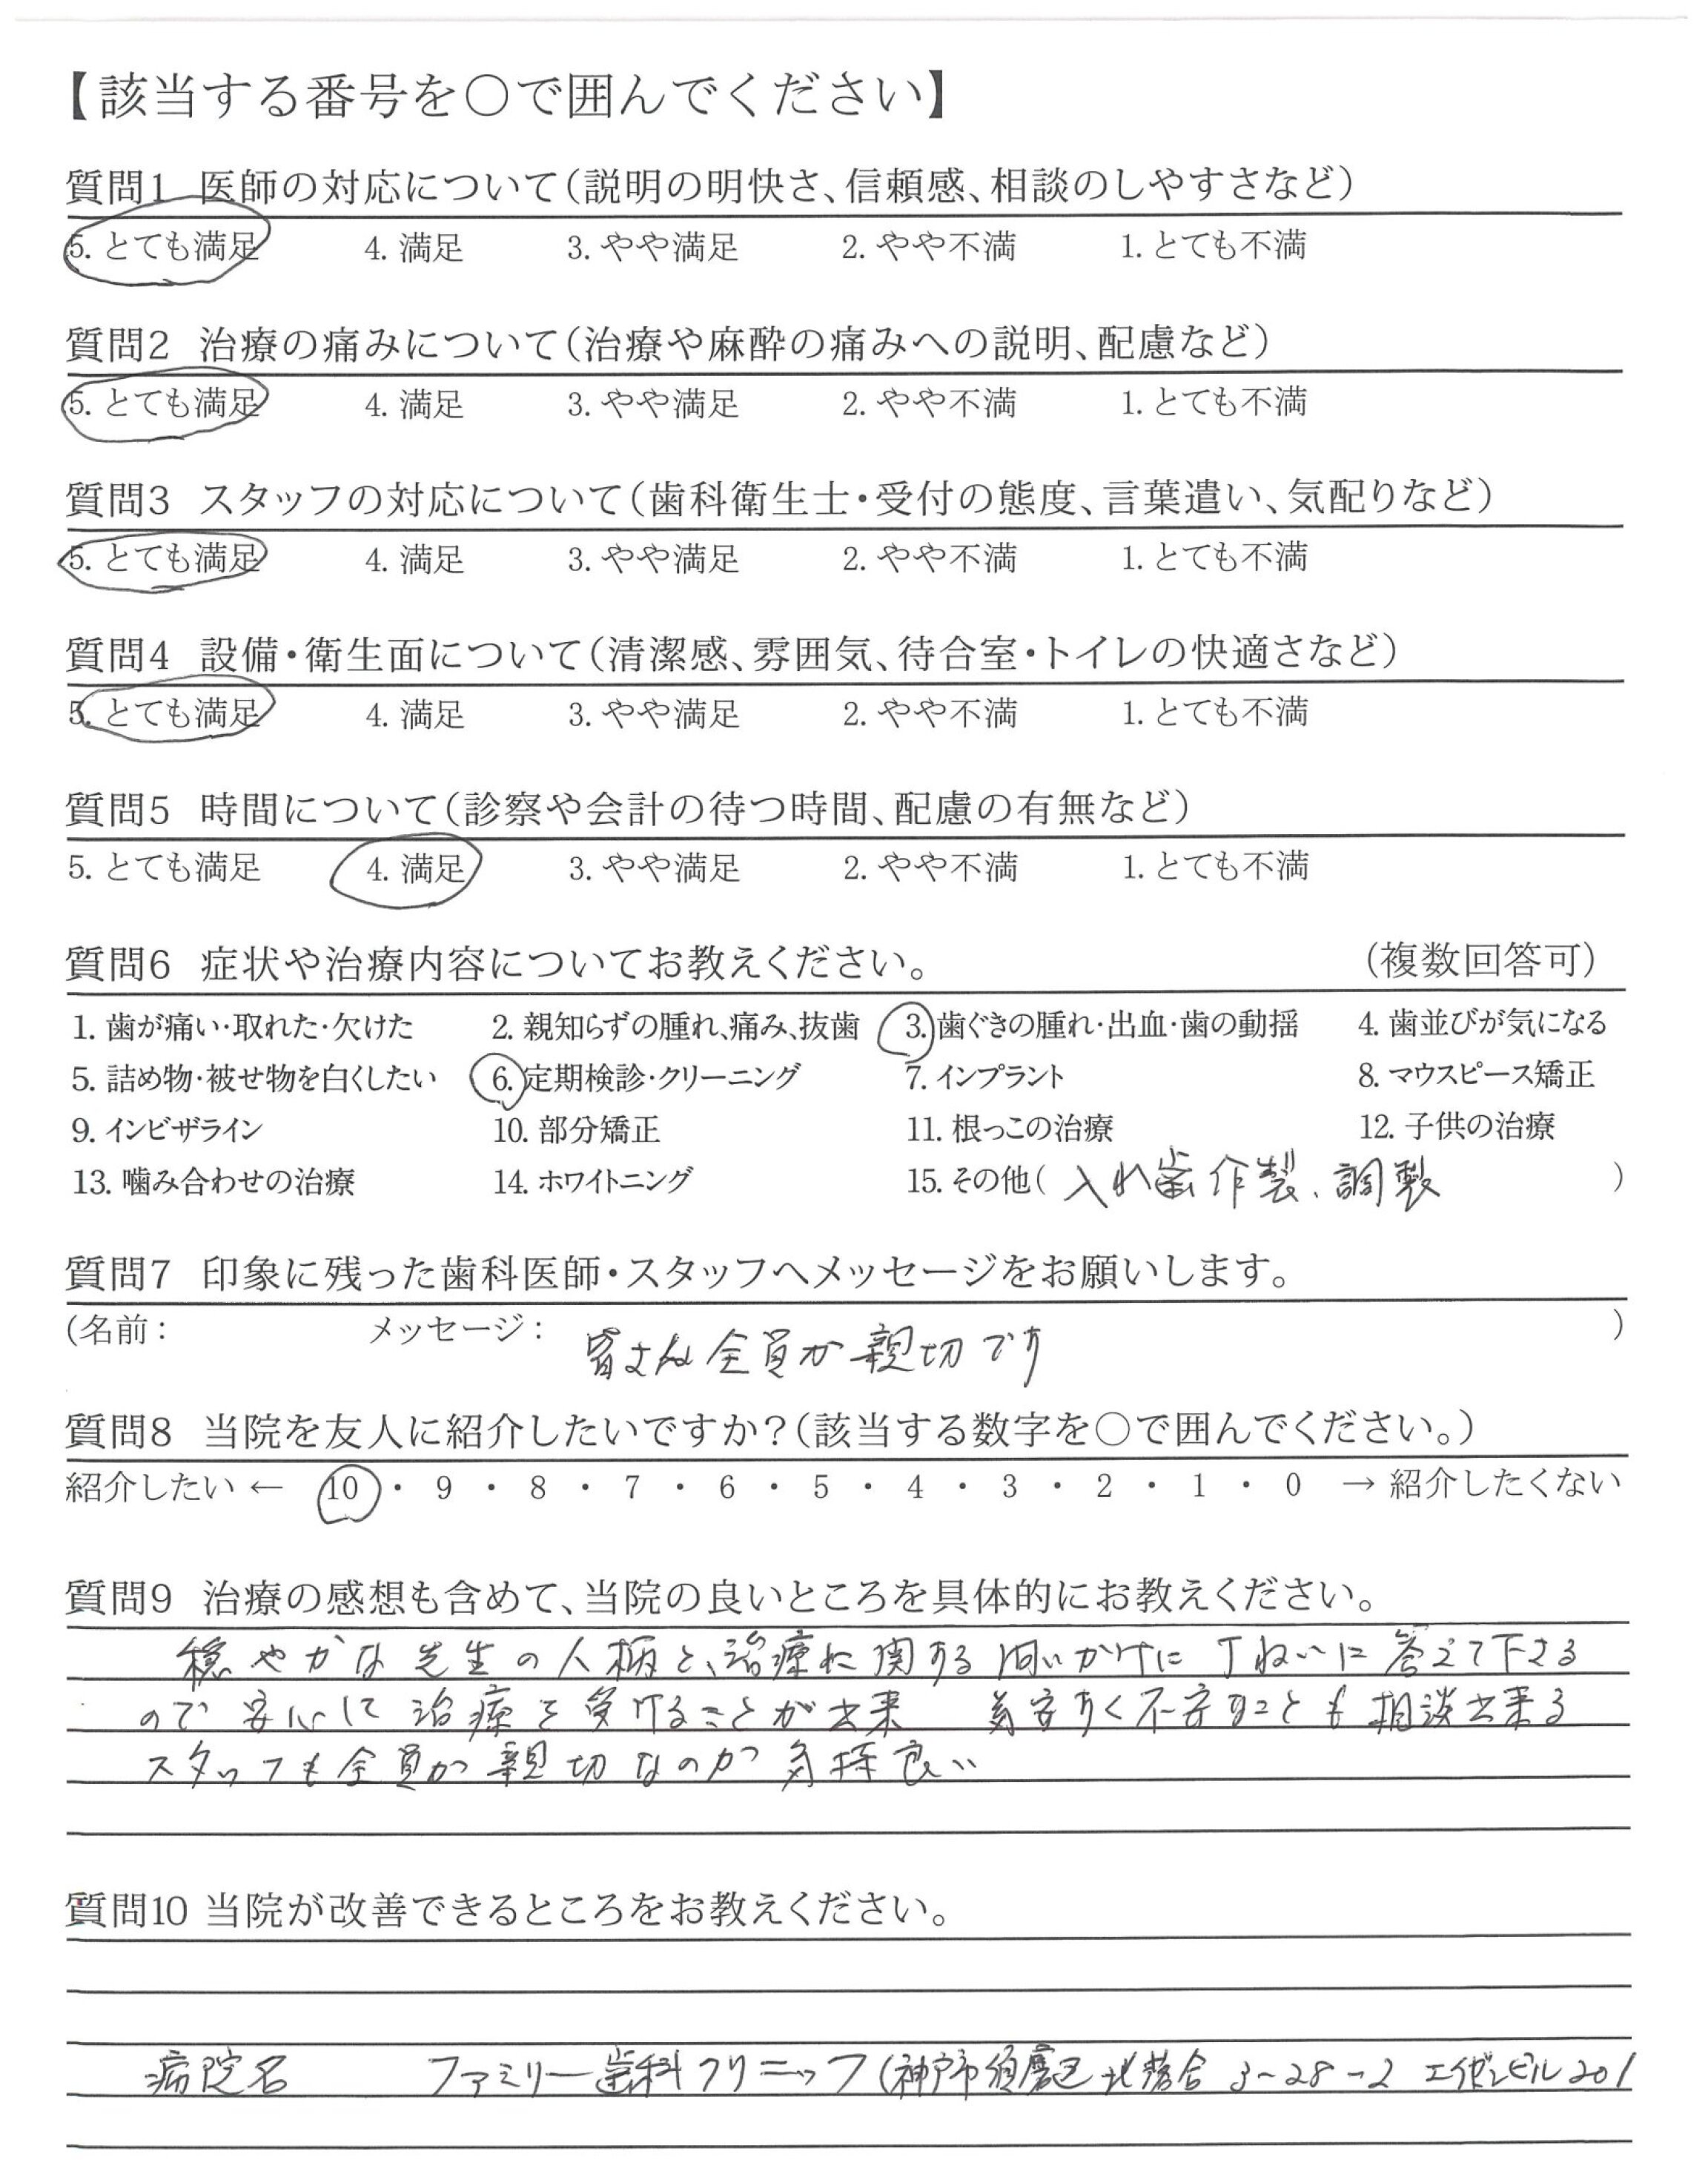 【該当する番号を〇で囲んでください】
質問1 医師の対応について(説明の明快さ、信頼感、相談のしやすさなど)
5. とても満足 4. 満足 3. やや満足 2. やや不満 1. とても不満
質問2 治療の痛みについて(治療や麻酔の痛みへの説明、配慮など)
5. とても満足 4. 満足 3. やや満足 2. やや不満 1. とても不満
質問3 スタッフの対応について(歯科衛生士・受付の態度、言葉遣い、気配りなど)
5. とても満足 4. 満足 3. やや満足 2. やや不満 1. とても不満
質問4 設備・衛生面について(清潔感、雰囲気、待合室・トイレの快適さなど)
5. とても満足 4. 満足 3. やや満足 2. やや不満 1. とても不満
質問5 時間について(診察や会計の待つ時間、配慮の有無など)
5. とても満足 4. 満足 3. やや満足 2. やや不満 1. とても不満
質問6 症状や治療内容についてお教えください。 (複数回答可)
1. 歯が痛い・取れた・欠けた 2. 親知らずの腫れ、痛み、抜歯 3. 歯ぐきの腫れ・出血・歯の動揺 4. 歯並びが気になる
5. 詰め物・被せ物を白くしたい 6. 定期検診・クリーニング 7. インプラント 8. マウスピース矯正
9. インビザライン 10. 部分矯正 11. 根っこの治療 12. 子供の治療
13. 噛み合わせの治療 14. ホワイトニング 15. その他( 入れ歯作製、調製 )
質問7 印象に残った歯科医師・スタッフへメッセージをお願いします。
(名前: メッセージ: 皆さん全員が親切です )
質問8 当院を友人に紹介したいですか?(該当する数字を〇で囲んでください。)
紹介したい ← 10 ・ 9 ・ 8 ・ 7 ・ 6 ・ 5 ・ 4 ・ 3 ・ 2 ・ 1 ・ 0 → 紹介したくない
質問9 治療の感想も含めて、当院の良いところを具体的にお教えください。
穏やかな先生の人柄と、治療に関する問いかけに丁ねいに答えて下さる
ので安心して治療を受けることが出来 気安すく不安なことも相談出来る
スタッフも全員が親切なのが気持良い
質問10 当院が改善できるところをお教えください。
病院名 ファミリー歯科クリニック(神戸市須磨区北落合3-28-2 エイゼンビル201